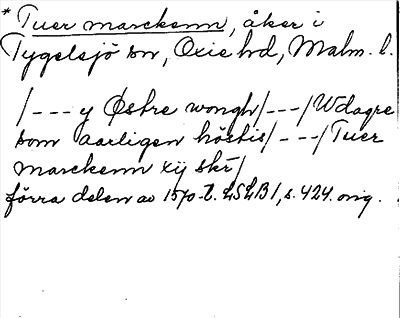 * Tuer marckenn, åker i
Tygelsjö sn, Oxie hd, Malm. l.
/--- y Østre wongh/---/Wdagre
som aarligen höstis/---/Tuer
marckenn xij skr/
förra delen av 1570-t. LSLB1, s. 424. orig.